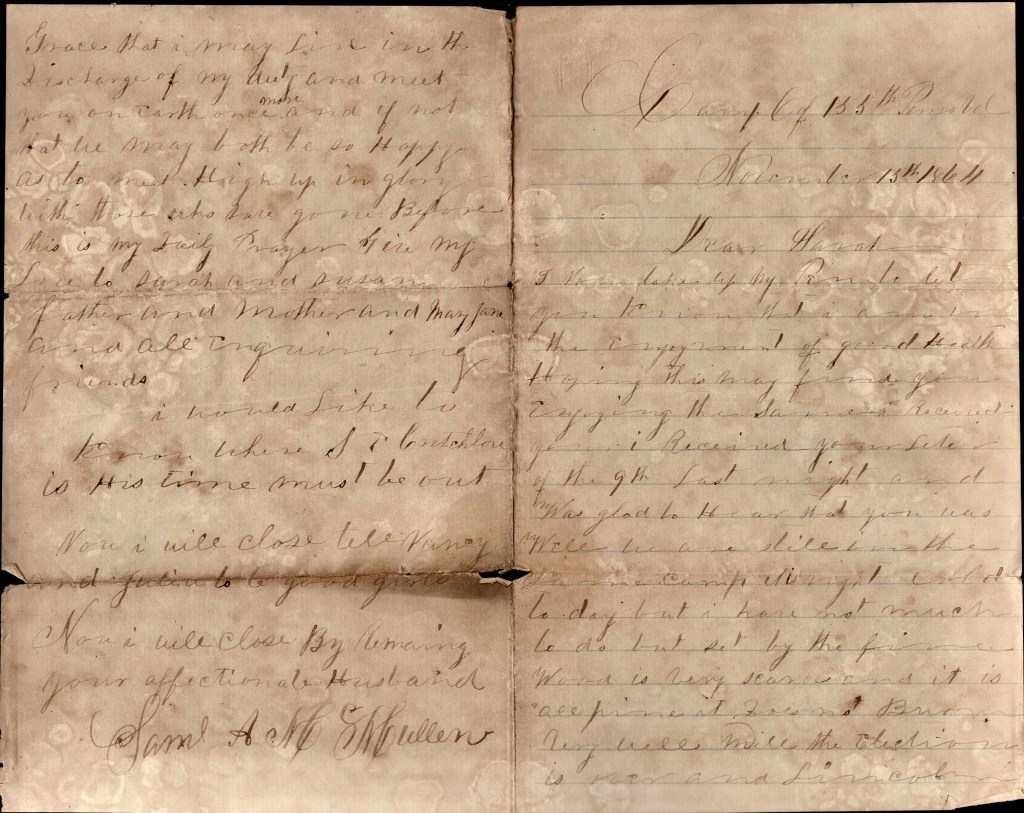 Camp of 155th Penna Vol
November 15th 1864
Dear Sarah
I Have taken up my Pen to let
you know that i am in
the Enjoyment of good Health
Hoping this may find you
Enjoying the same i Received
your i Received your Letter
of the 9th Last night and
Was glad to Hear that you was
Well we are still in the
same camp it is right cold
to day but i have not much
to do but set by the fire
Wood is very scarce and it is
all pine it Does not Burn
very well Well the Election
is over and Lincoln
Grace that i may Live in the
Discharge of my duty and meet
you on Earth once more and if not
that we may both be so Happy
as to meet High up in glory
with those who have gone Before
this is my Daily Prayer Give my
Love to Sarah and susan
father and Mother and Mary Jane
and all Enquiring
friends
i would Like to
know where S T Critchlow
is His time must be out
Now i will close tell Nancy
and Julia to be good girls
Now i will close By Remaing
your affectionate Husband
Saml A McMullen